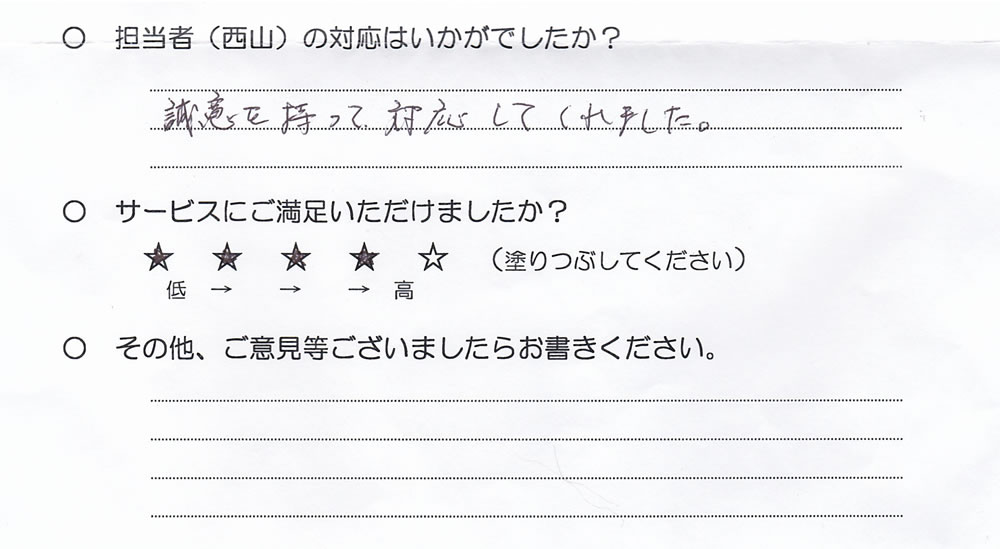 ○ 担当者（西山）の対応はいかがでしたか？
誠意を持って対応してくれました。
○ サービスにご満足いただけましたか？
★ ★ ★ ★ ☆ （塗りつぶしてください）
低 → → → 高
○ その他、ご意見等ございましたらお書きください。